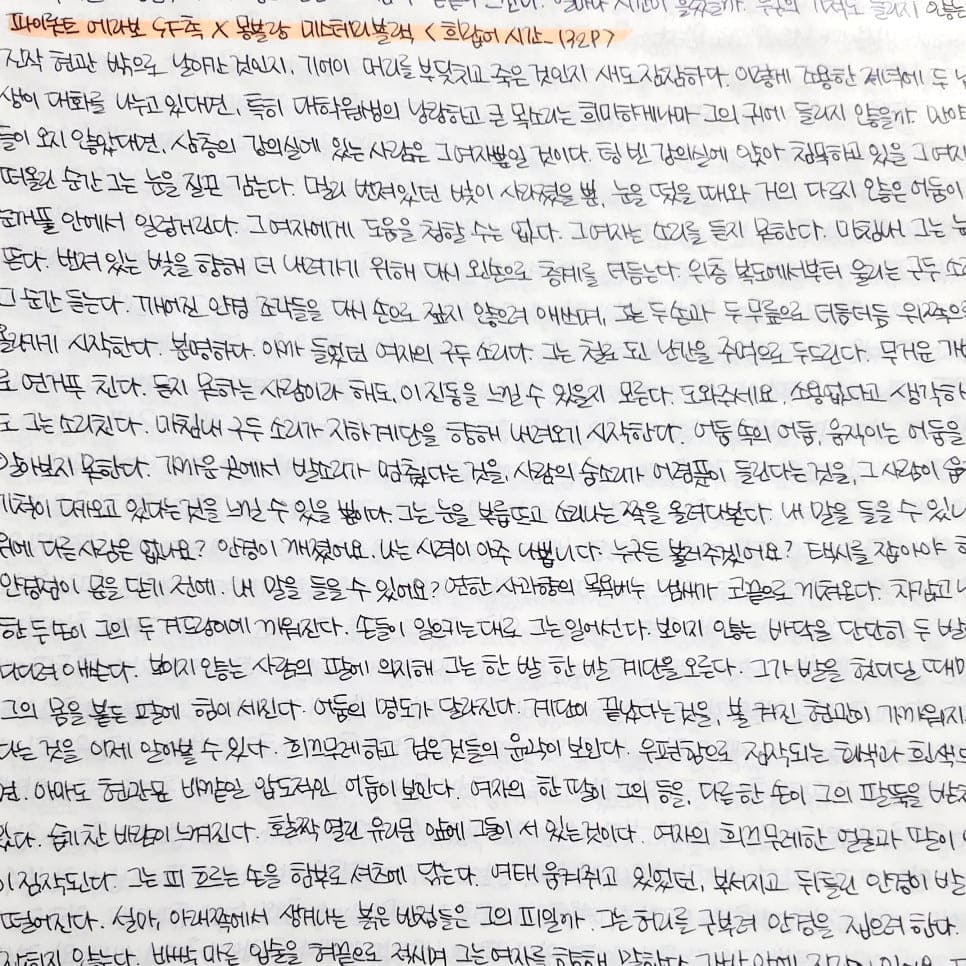 파이롯트 에라보 SF촉 X 몽블랑 미스테리블랙 < 희랍어 시간_132P >
진작 현관 밖으로 날아간 것인지, 기어이 머리를 부딪치고 죽은 것인지 새도 잠잠하다. 이렇게 조용한 저녁에 두
생이 대화를 나누고 있다면, 특히 대학원생의 낭랑하고 큰 목소리는 희미하게나마 그의 귀에 들리지 않을까. 만약
들이 오지 않았다면, 상층의 강의실에 있는 사람은 그 여자뿐일 것이다. 텅 빈 강의실에 앉아 침묵하고 있을 그 여자
떠올린 순간 그는 눈을 질끈 감는다. 멀리 번져있던 빛이 사라졌을 뿐, 눈을 떴을 때와 거의 다르지 않은 어둠이
눈꺼풀 안에서 일렁거린다. 그 여자에게 도움을 청할 수는 없다. 그 여자는 소리를 듣지 못한다. 마침내 그는 눈
뜬다. 번져 있는 빛을 향해 더 내려가기 위해 다시 왼손으로 층계를 더듬는다. 위층 복도에서부터 울리는 구두 소
그 순간 듣는다. 깨어진 안경 조각들을 다시 손으로 짚지 않으려 애쓰며, 그는 두 손과 두 무릎으로 더듬더듬 위쪽으로
올라가기 시작한다. 분명하다. 아까 들었던 여자의 구두 소리다. 그는 철로 된 난간을 주먹으로 두드린다. 무거운 가방
로 연거푸 친다. 듣지 못하는 사람이라 해도, 이 진동을 느낄 수 있을지 모른다. 도와주세요. 소용없다고 생각하
도 그는 소리친다. 마침내 구두 소리가 지하계단을 향해 내려오기 시작한다. 어둠 속의 어둠, 움직이는 어둠을
알아보지 못한다. 가까운 곳에서 발소리가 멈췄다는 것을, 사람의 숨소리가 어렴풋이 들린다는 것을, 그 사람이 숨
기척이 다가오고 있다는 것을 느낄 수 있을 뿐이다. 그는 눈을 부릅뜨고 소리나는 쪽을 올려다본다. 내 말을 들을 수 있나
위에 다른 사람은 없나요? 안경이 깨졌어요. 나는 시력이 아주 나쁩니다. 누구든 불러주겠어요? 택시를 잡아야 하
안경점이 문을 닫기 전에. 내 말을 들을 수 있어요? 연한 사과향의 목욕비누 냄새가 코끝으로 끼쳐온다. 차갑고
한 두 손이 그의 두 겨드랑이에 끼워진다. 손들이 일으키는대로 그는 일어선다. 보이지 않는 바닥을 단단히 두 발
디디려 애쓴다. 보이지 않는 사람의 팔에 의지해 그는 한 발 한 발 계단을 오른다. 그가 발을 헛디딜 때마
그의 몸을 붙든 팔에 힘이 세진다. 어둠의 명도가 달라진다. 계단이 끝났다는 것을, 불 켜진 현관이 가까워지
다는 것을 이제 알아볼 수 있다. 희끄무레하고 검은 것들의 윤곽이 보인다. 우편함으로 짐작되는 회색과 흰색의
면. 아마도 현관문 바깥일 압도적인 어둠이 보인다. 여자의 한 팔이 그의 등을, 다른 한 손이 그의 팔뚝을 받치
있다. 습기 찬 바람이 느껴진다. 활짝 열린 유리문 앞에 그들이 서 있는 것이다. 여자의 희끄무레한 얼굴과 팔이
이 짐작된다. 그는 피 흐르는 손을 함부로 셔츠에 닦는다. 여태 움켜쥐고 있었던, 부서지고 뒤틀린 안경이 발
떨어진다. 설마, 아래쪽에서 생겨나는 붉은 반점들은 그의 피일까. 그는 허리를 구부려 안경을 집으려 한다.
잡히지 않는다. 바싹 마른 입술을 혀끝으로 적시며 그는 여자를 향해 말한다.